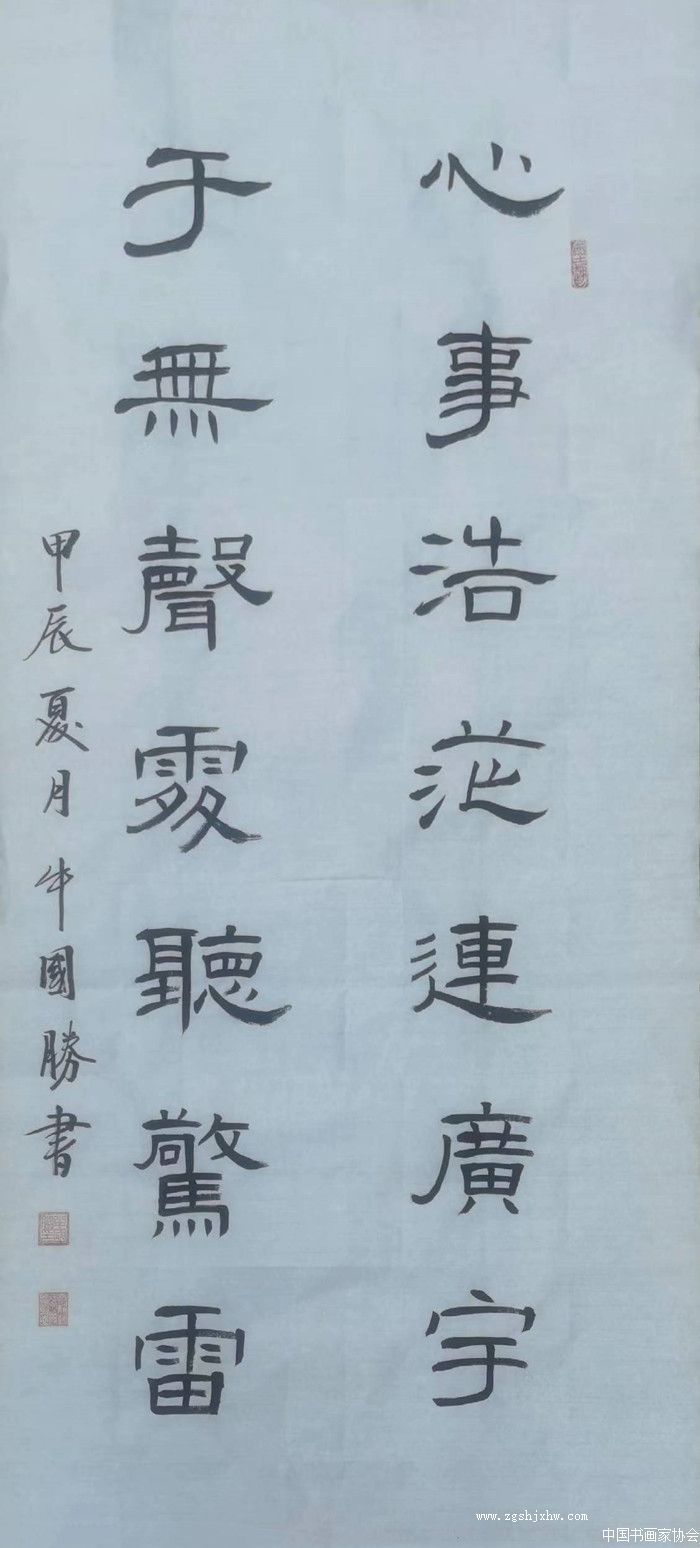 心事浩茫連廣宇
于無聲處聽驚雷
甲辰夏月牛國勝書
www.zgshjxhw.com
中国书画家协会